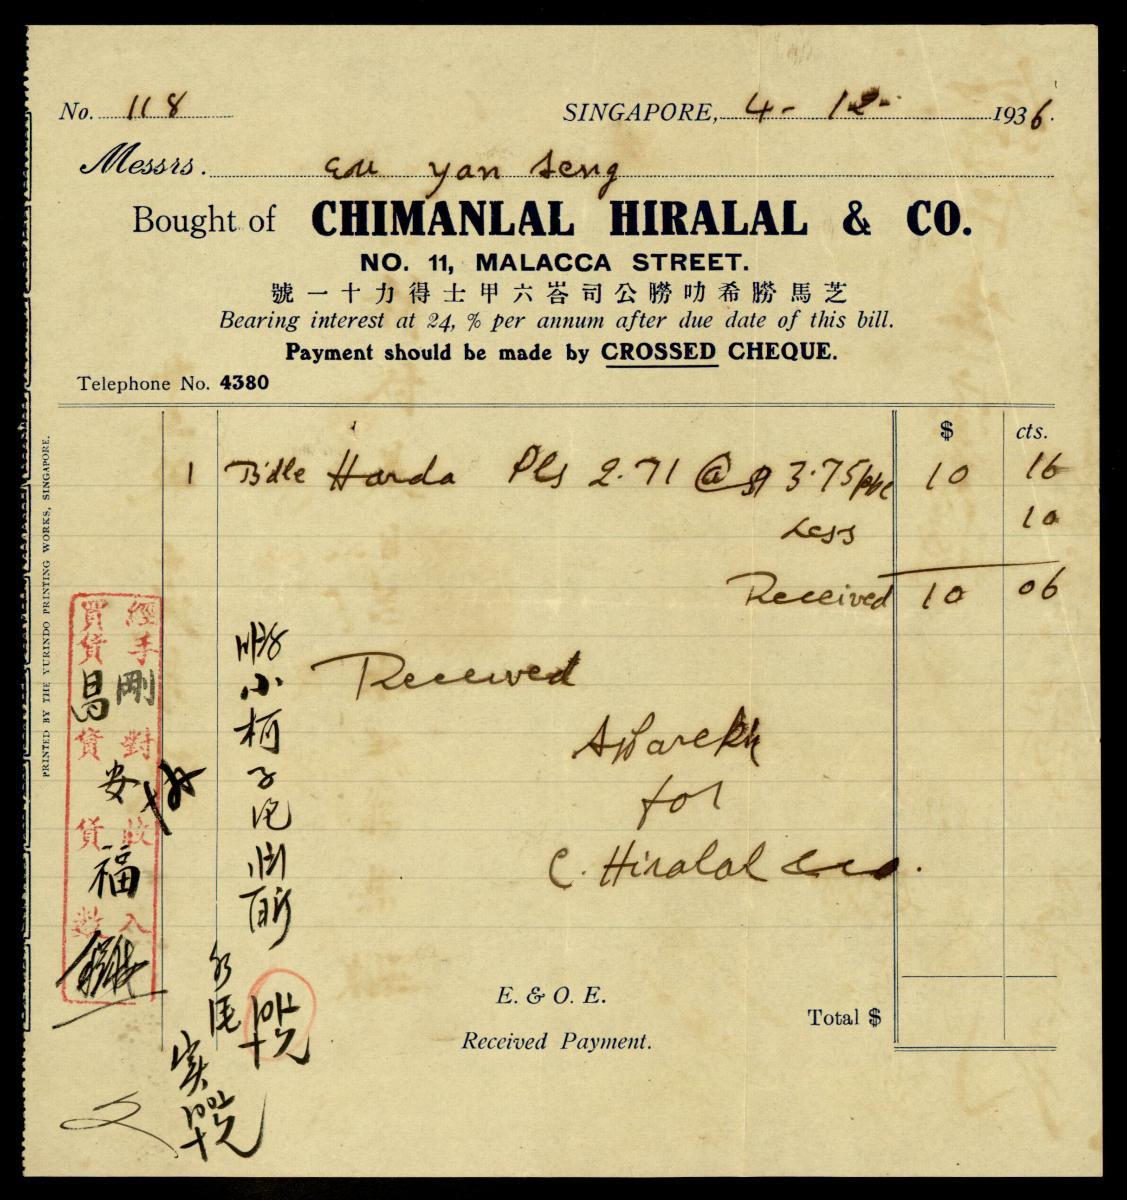 No. 118
SINGAPORE, 4-12-1936.
Messrs. Eou Yan Seng
Bought of CHIMANLAL HIRALAL & CO.
NO. 11, MALACCA STREET.
號一十力得士甲六峇司公朥叻希朥馬芝
Bearing interest at 24, % per annum after due date of this bill.
Payment should be made by CROSSED CHEQUE.
Telephone No. 4380
$ cts.
1 Bdle Harda Pls 2.71 @ $ 3.75/ 10 16
Less 10
Received 10 06
Received
for
C. Hiralal & Co.
經手 買貨
剛 昌
對 貨
安
收 貨
福
入 數
小
柯
E. & O. E.
Total $
Received Payment.
PRINTED BY THE YURINDO PRINTING WORKS, SINGAPORE.